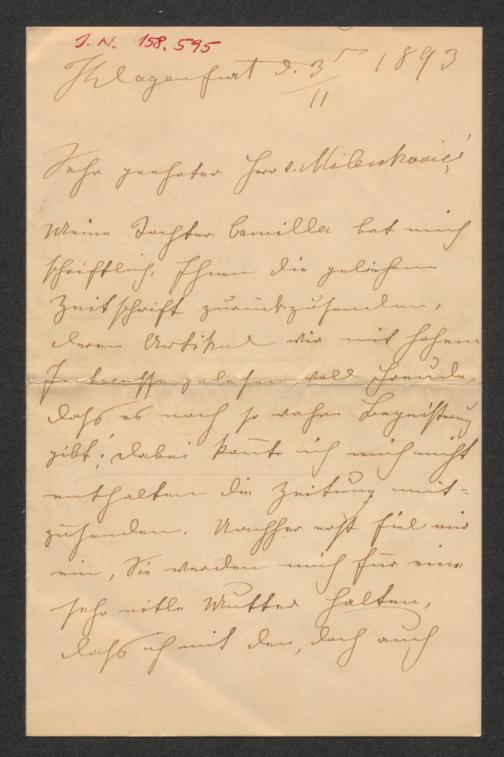 J. N. 158.595
Klagenfurt d. 3/11 1893
Sehr geehrter Herr v. Milenkovic!
Meine Tochter Camilla bat mich
schriftlich, Ihnen die geliehene
Zeitschrift zurückzusenden,
deren Artikel wir mit hohem
Interesse gelesen voll Freude,
dass es noch so wahre Begeisterung
gibt; dabei konnte ich mich nicht
enthalten die Zeitung mit-
zusenden. Nachher erst fiel mir
ein, Sie werden mich für eine
sehr eitle Mutter halten,
dass ich mit den, doch auch